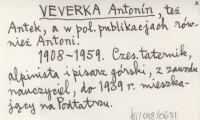 VEVERKA Antonín, też
Antek, a w pol. publikacjach rów-
nież Antoni.
1908–1959. Czes. taternik,
alpinista i pisarz górski, z zawodu
nauczyciel, do 1939 r. mieszka-
jący na Podtatrzu.